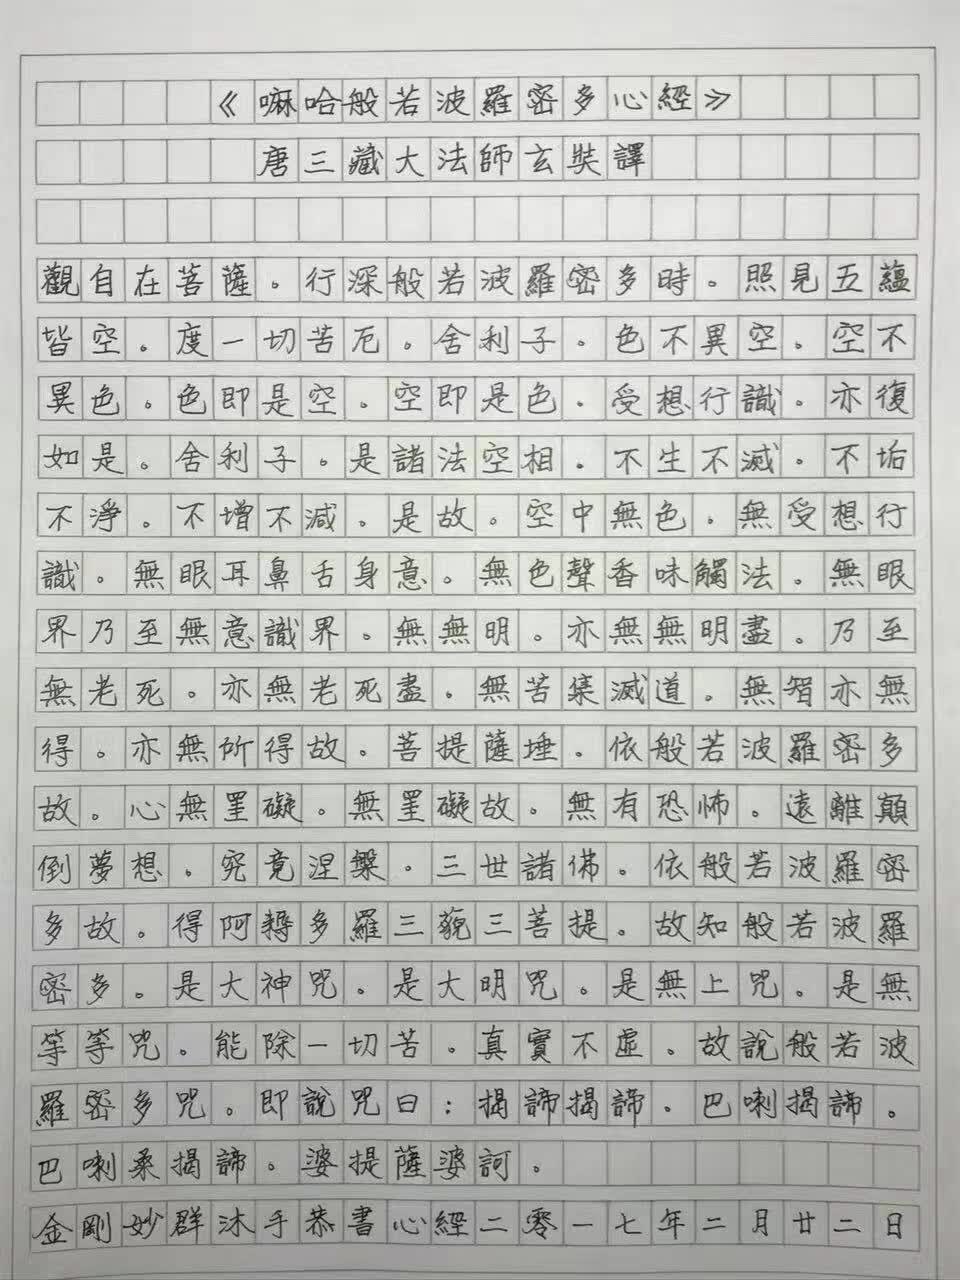 《嘛哈般若波羅密多心經》
唐三藏大法師玄奘譯
觀自在菩薩。行深般若波羅密多時。照見五蘊
皆空。度一切苦厄。舍利子。色不異空。空不
異色。色即是空。空即是色。受想行識。亦復
如是。舍利子。是諸法空相。不生不滅。不垢
不淨。不增不減。是故。空中無色。無受想行
識。無眼耳鼻舌身意。無色聲香味觸法。無眼
界乃至無意識界。無無明。亦無無明盡。乃至
無老死。亦無老死盡。無苦集滅道。無智亦無
得。亦無所得故。菩提薩埵。依般若波羅密多
故。心無罣礙。無罣礙故。無有恐怖。遠離顛
倒夢想。究竟涅槃。三世諸佛。依般若波羅密
多故。得阿耨多羅三藐三菩提。故知般若波羅
密多。是大神咒。是大明咒。是無上咒。是無
等等咒。能除一切苦。真實不虛。故說般若波
羅密多咒。即說咒曰：揭諦揭諦。巴喇揭諦。
巴喇桑揭諦。婆提薩婆訶。
金剛妙群沐手恭書心經二零一七年二月廿二日